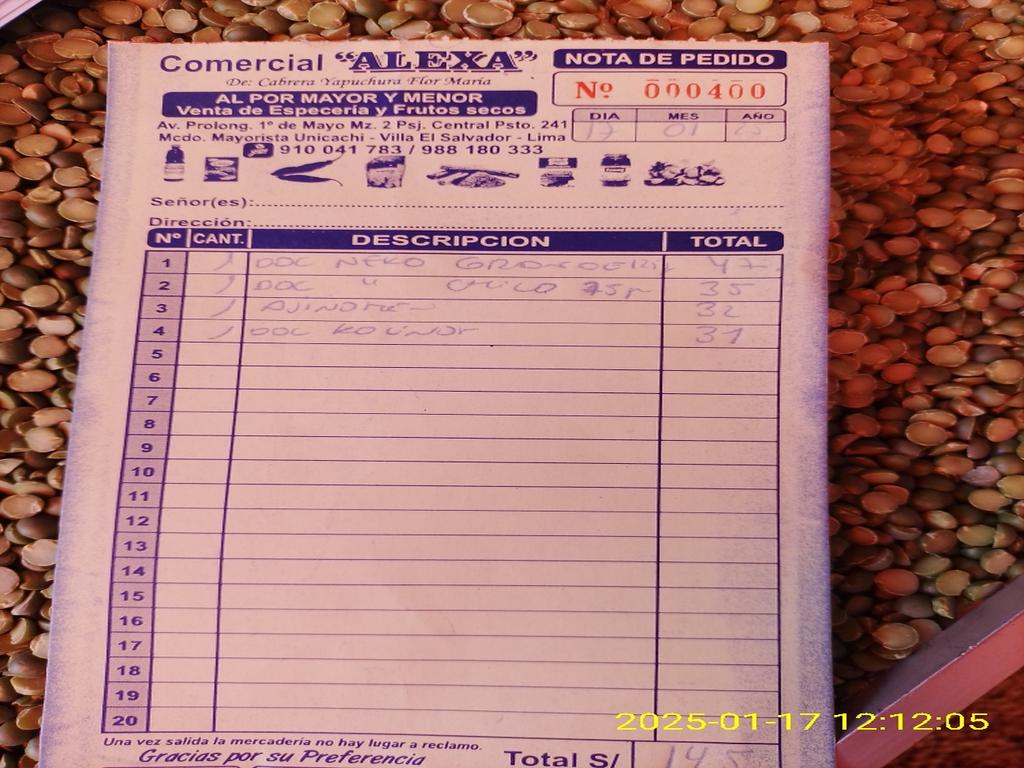 Comercial “ALEXA”
De: Cabrera Yapuchura Flor María
AL POR MAYOR Y MENOR
Venta de Especería y Frutos secos
Av. Prolong. 1º de Mayo Mz. 2 Psj. Central Psto. 241
Mcdo. Mayorista Unicachi - Villa El Salvador - Lima
910 041 783 / 988 180 333
NOTA DE PEDIDO
Nº 000400
DIA MES AÑO
17 01 25
Señor(es):
Dirección:
Nº CANT. DESCRIPCION TOTAL
1 1 DOC NEKO 47
2 1 DOC " CHICO 75gr 35
3 1 AJINOMEN 32
4 1 DOC KOLINOS 31
5
6
7
8
9
10
11
12
13
14
15
16
17
18
19
20
Una vez salida la mercadería no hay lugar a reclamo.
Gracias por su Preferencia
Total S/ 145
2025-01-17 12:12:05